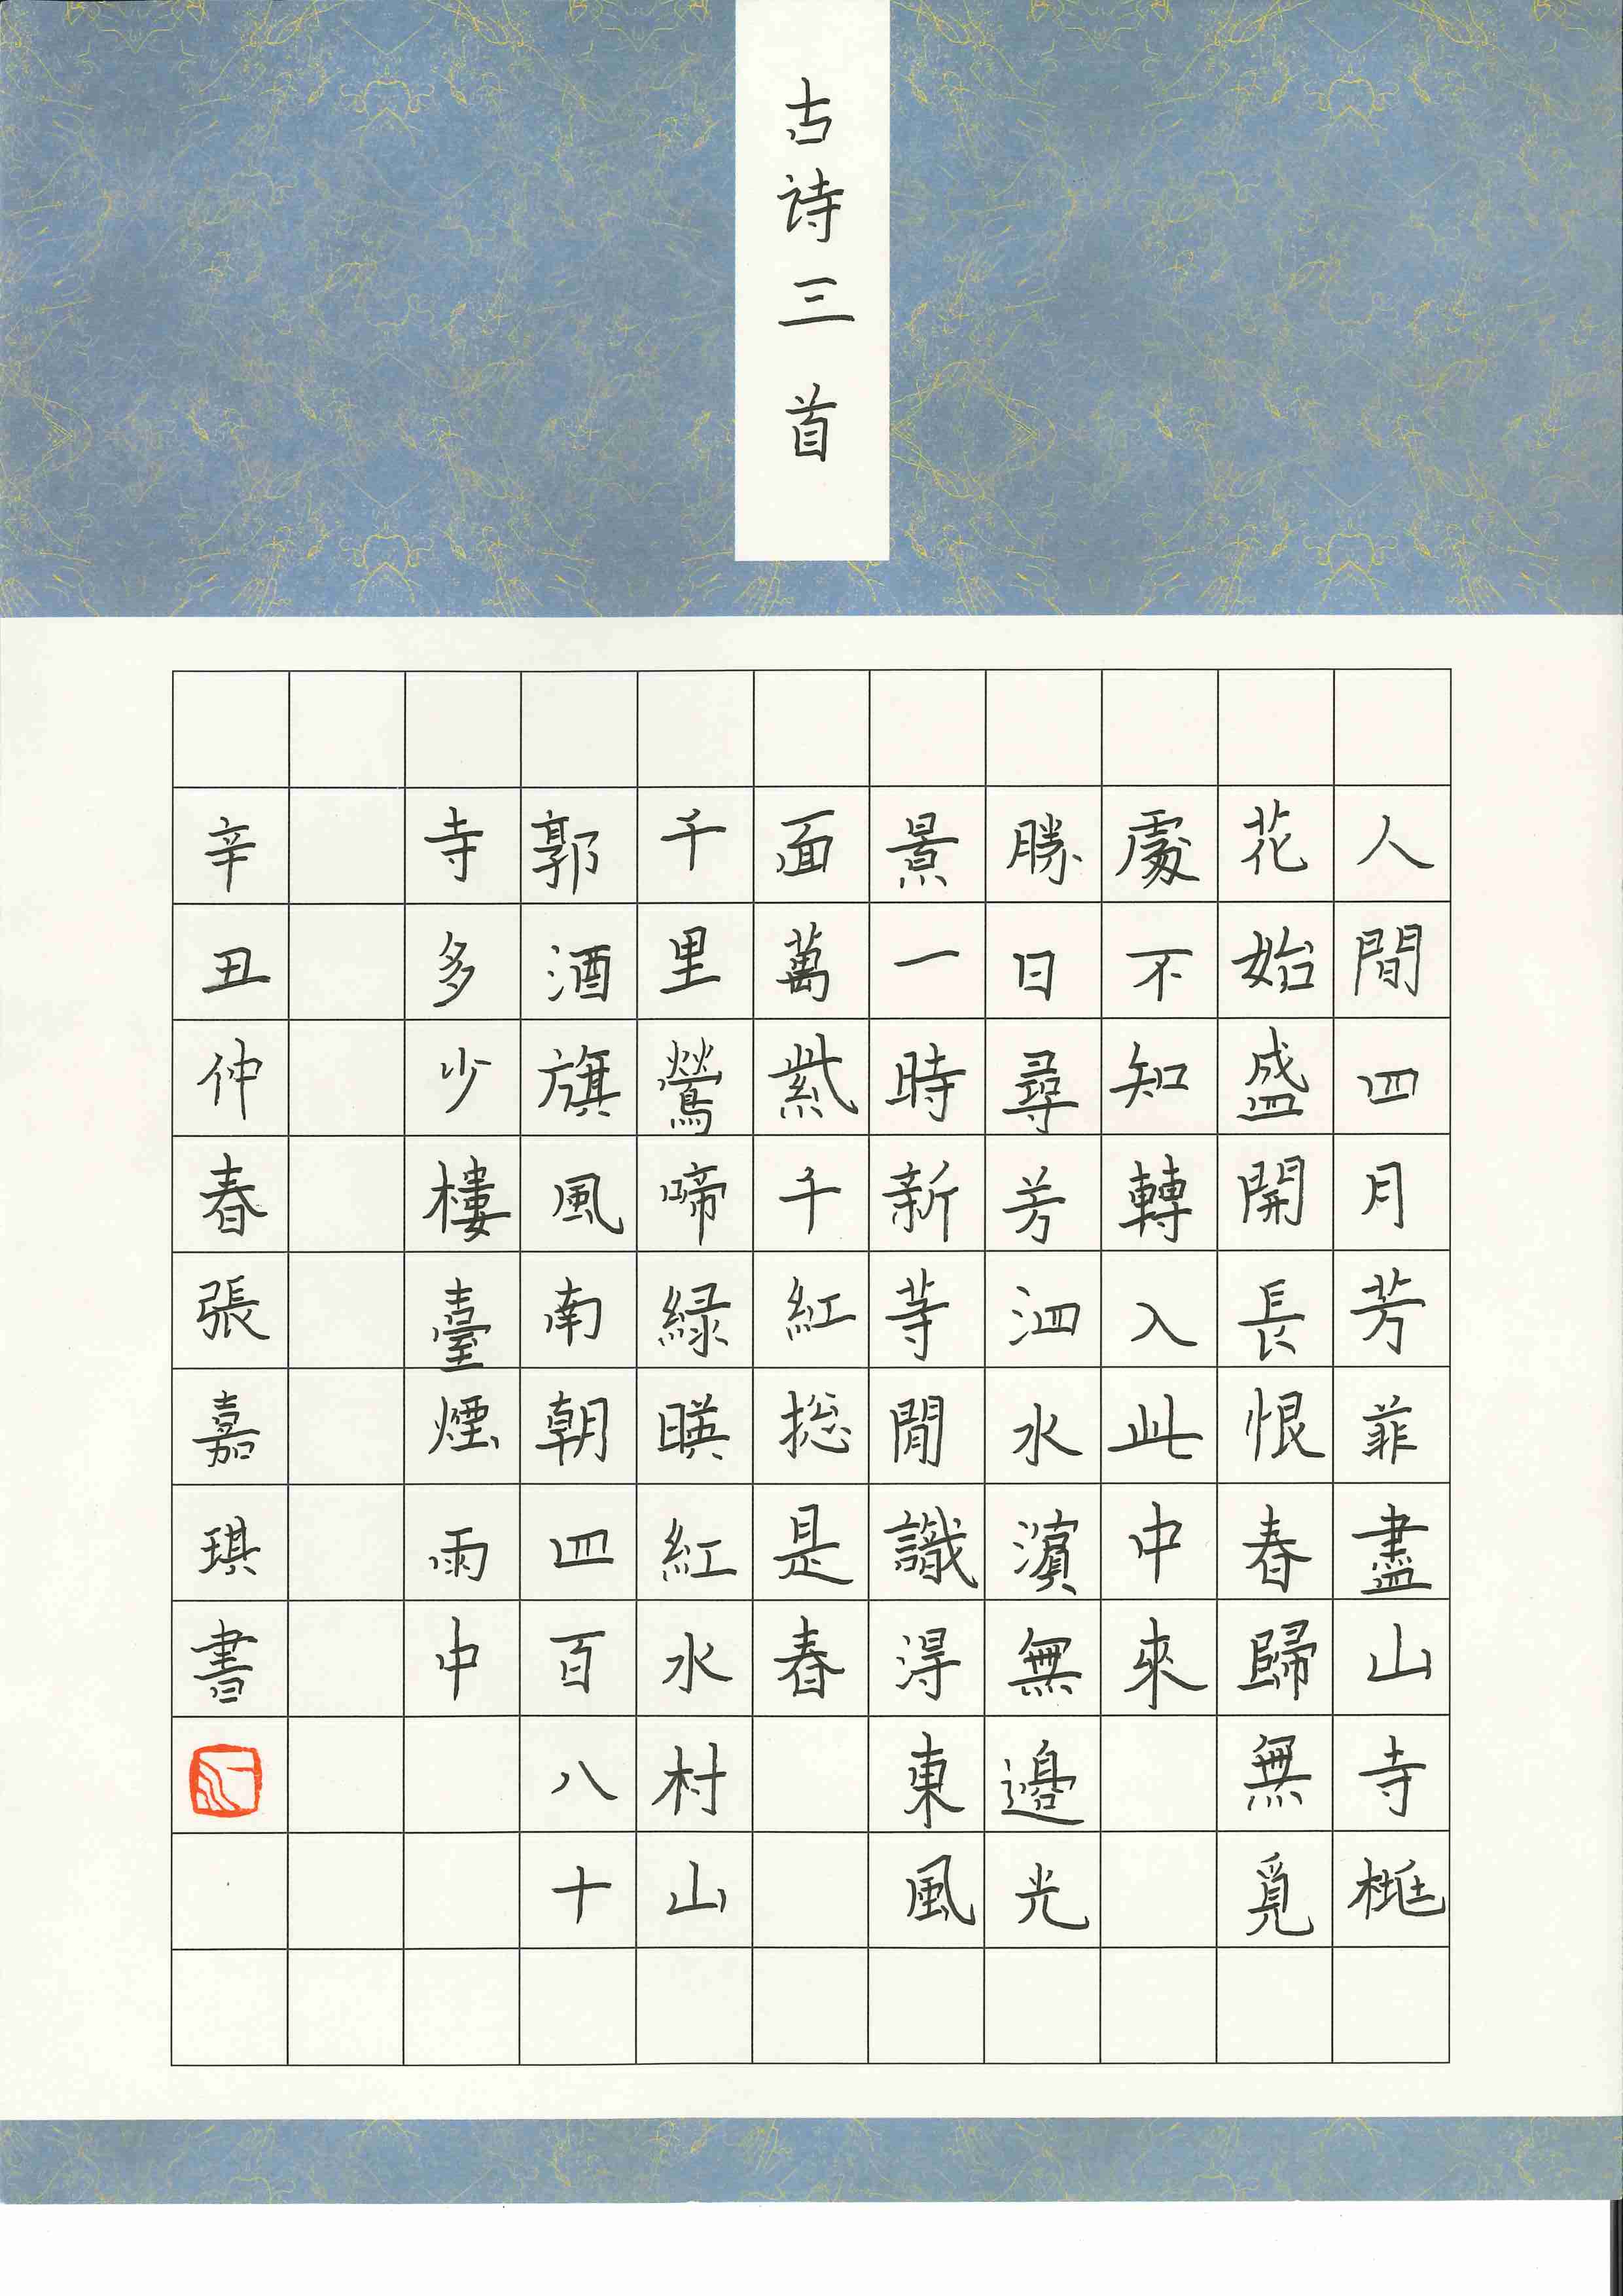 古诗三首
人間四月芳菲盡山寺桃
花始盛開長恨春歸無覓
處不知轉入此中來
勝日尋芳泗水濱無邊光
景一時新等閒識得東風
面萬紫千紅総是春
千里鶯啼緑暎紅水村山
郭酒旗風南朝四百八十
寺多少樓臺煙雨中
辛丑仲春張嘉琪書